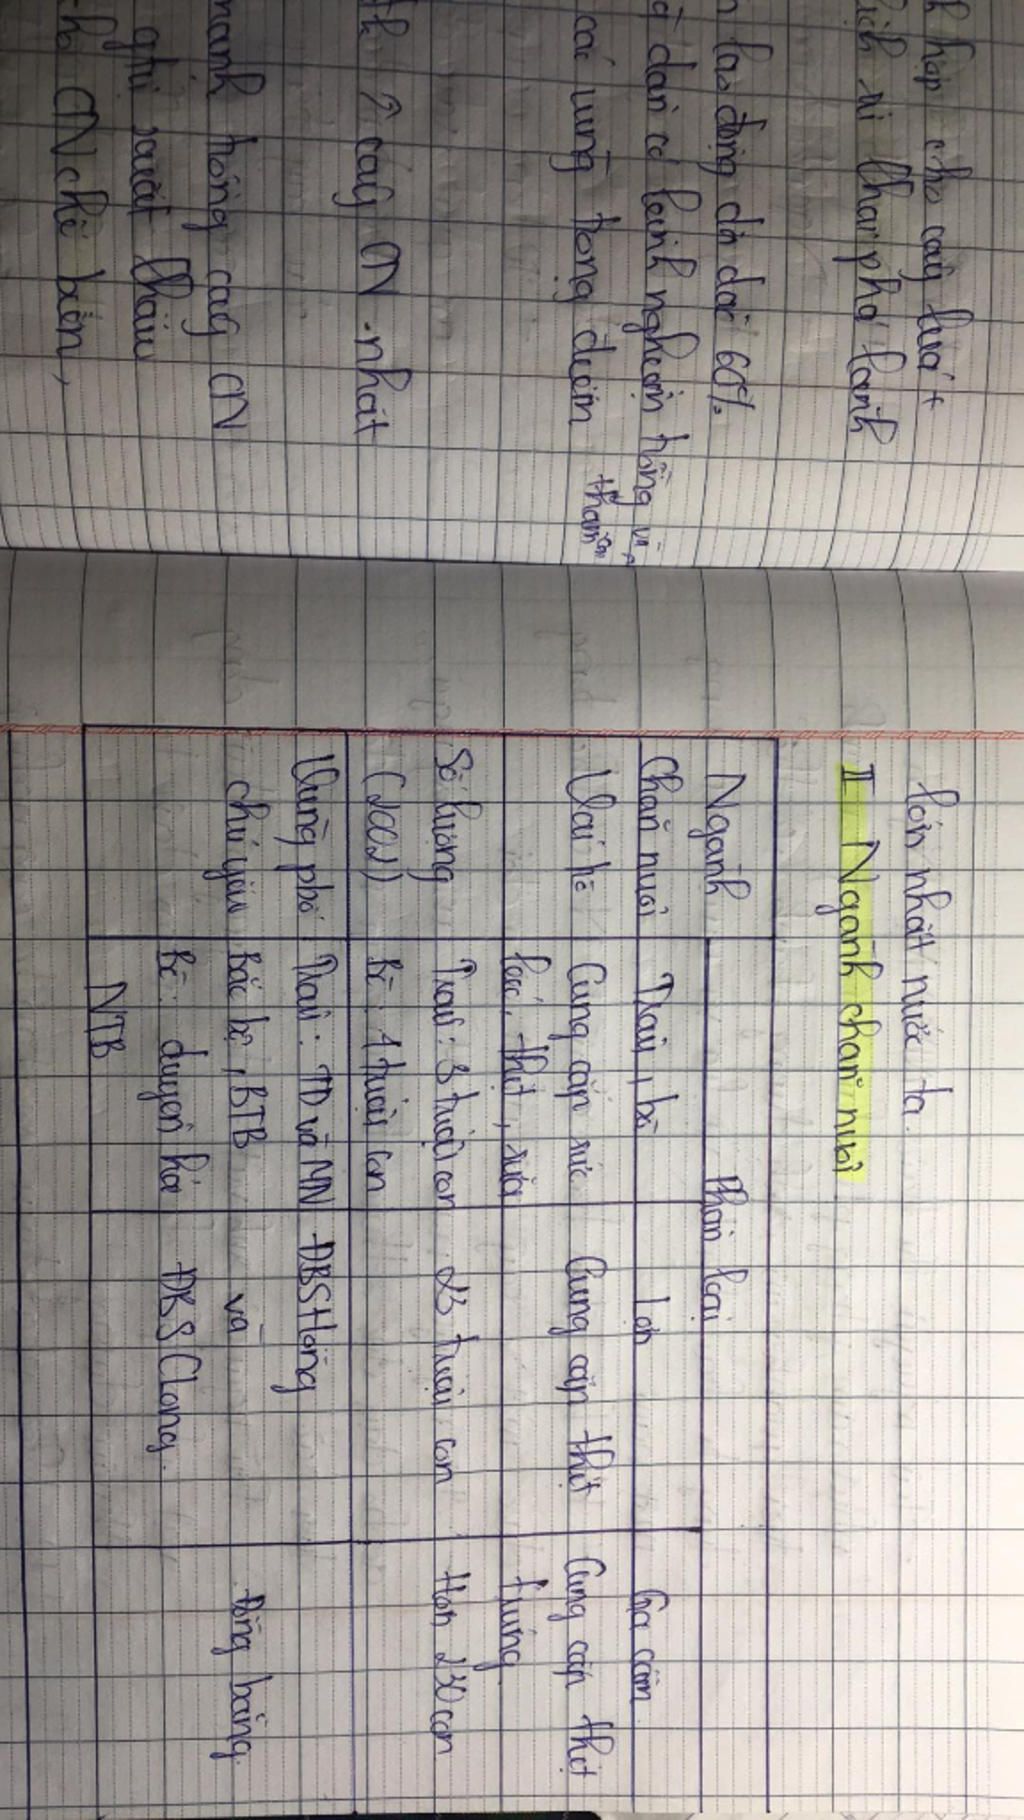 hợp cho cây lúa +
khám phá lành
lao động dồi dào 60%
dân có kinh nghiệm trồng và
thâm
các vùng trọng điểm
cây CN nhất
mạnh trồng cây CN
xuất khẩu
CN chế biến,
lớn nhất nước ta.
II Ngành chăn nuôi
Ngành
Phân loại
chăn nuôi
Trâu, bò
Lợn
Gia cầm.
Vai trò
Cung cấp sức
Cung cấp thịt
Cung cấp thịt
kéo, thịt, sữa
trứng
Số lượng
Trâu: 3 triệu con
23 triệu con
Hơn 230 con
(2002)
Bò: 4 triệu con
Vùng phố
Trâu: TD và MN
ĐBSHồng
chủ yếu
Bắc bộ, BTB
và
Đồng bằng.
Bò: duyên hải
ĐBSCLong.
NTB